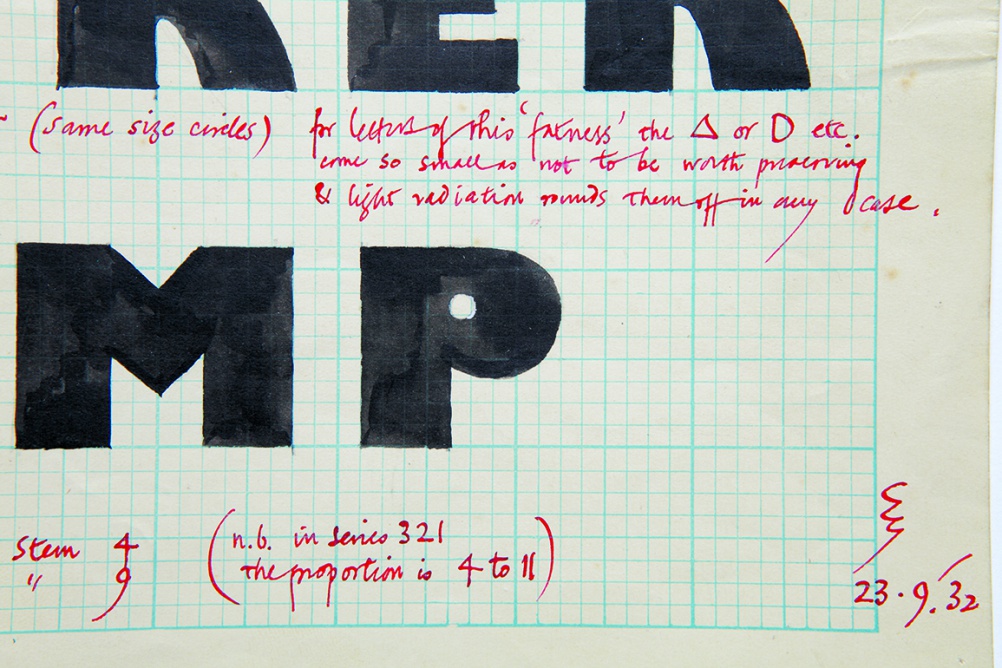 E
(same size circles) for letters of this 'fatness' the Δ or D etc.
come so small as not to be worth preserving
& light radiation rounds them off in any case.
MP
Stem 4
" 9
(n.b. in series 321
the proportion is 4 to 11)
23.9.32